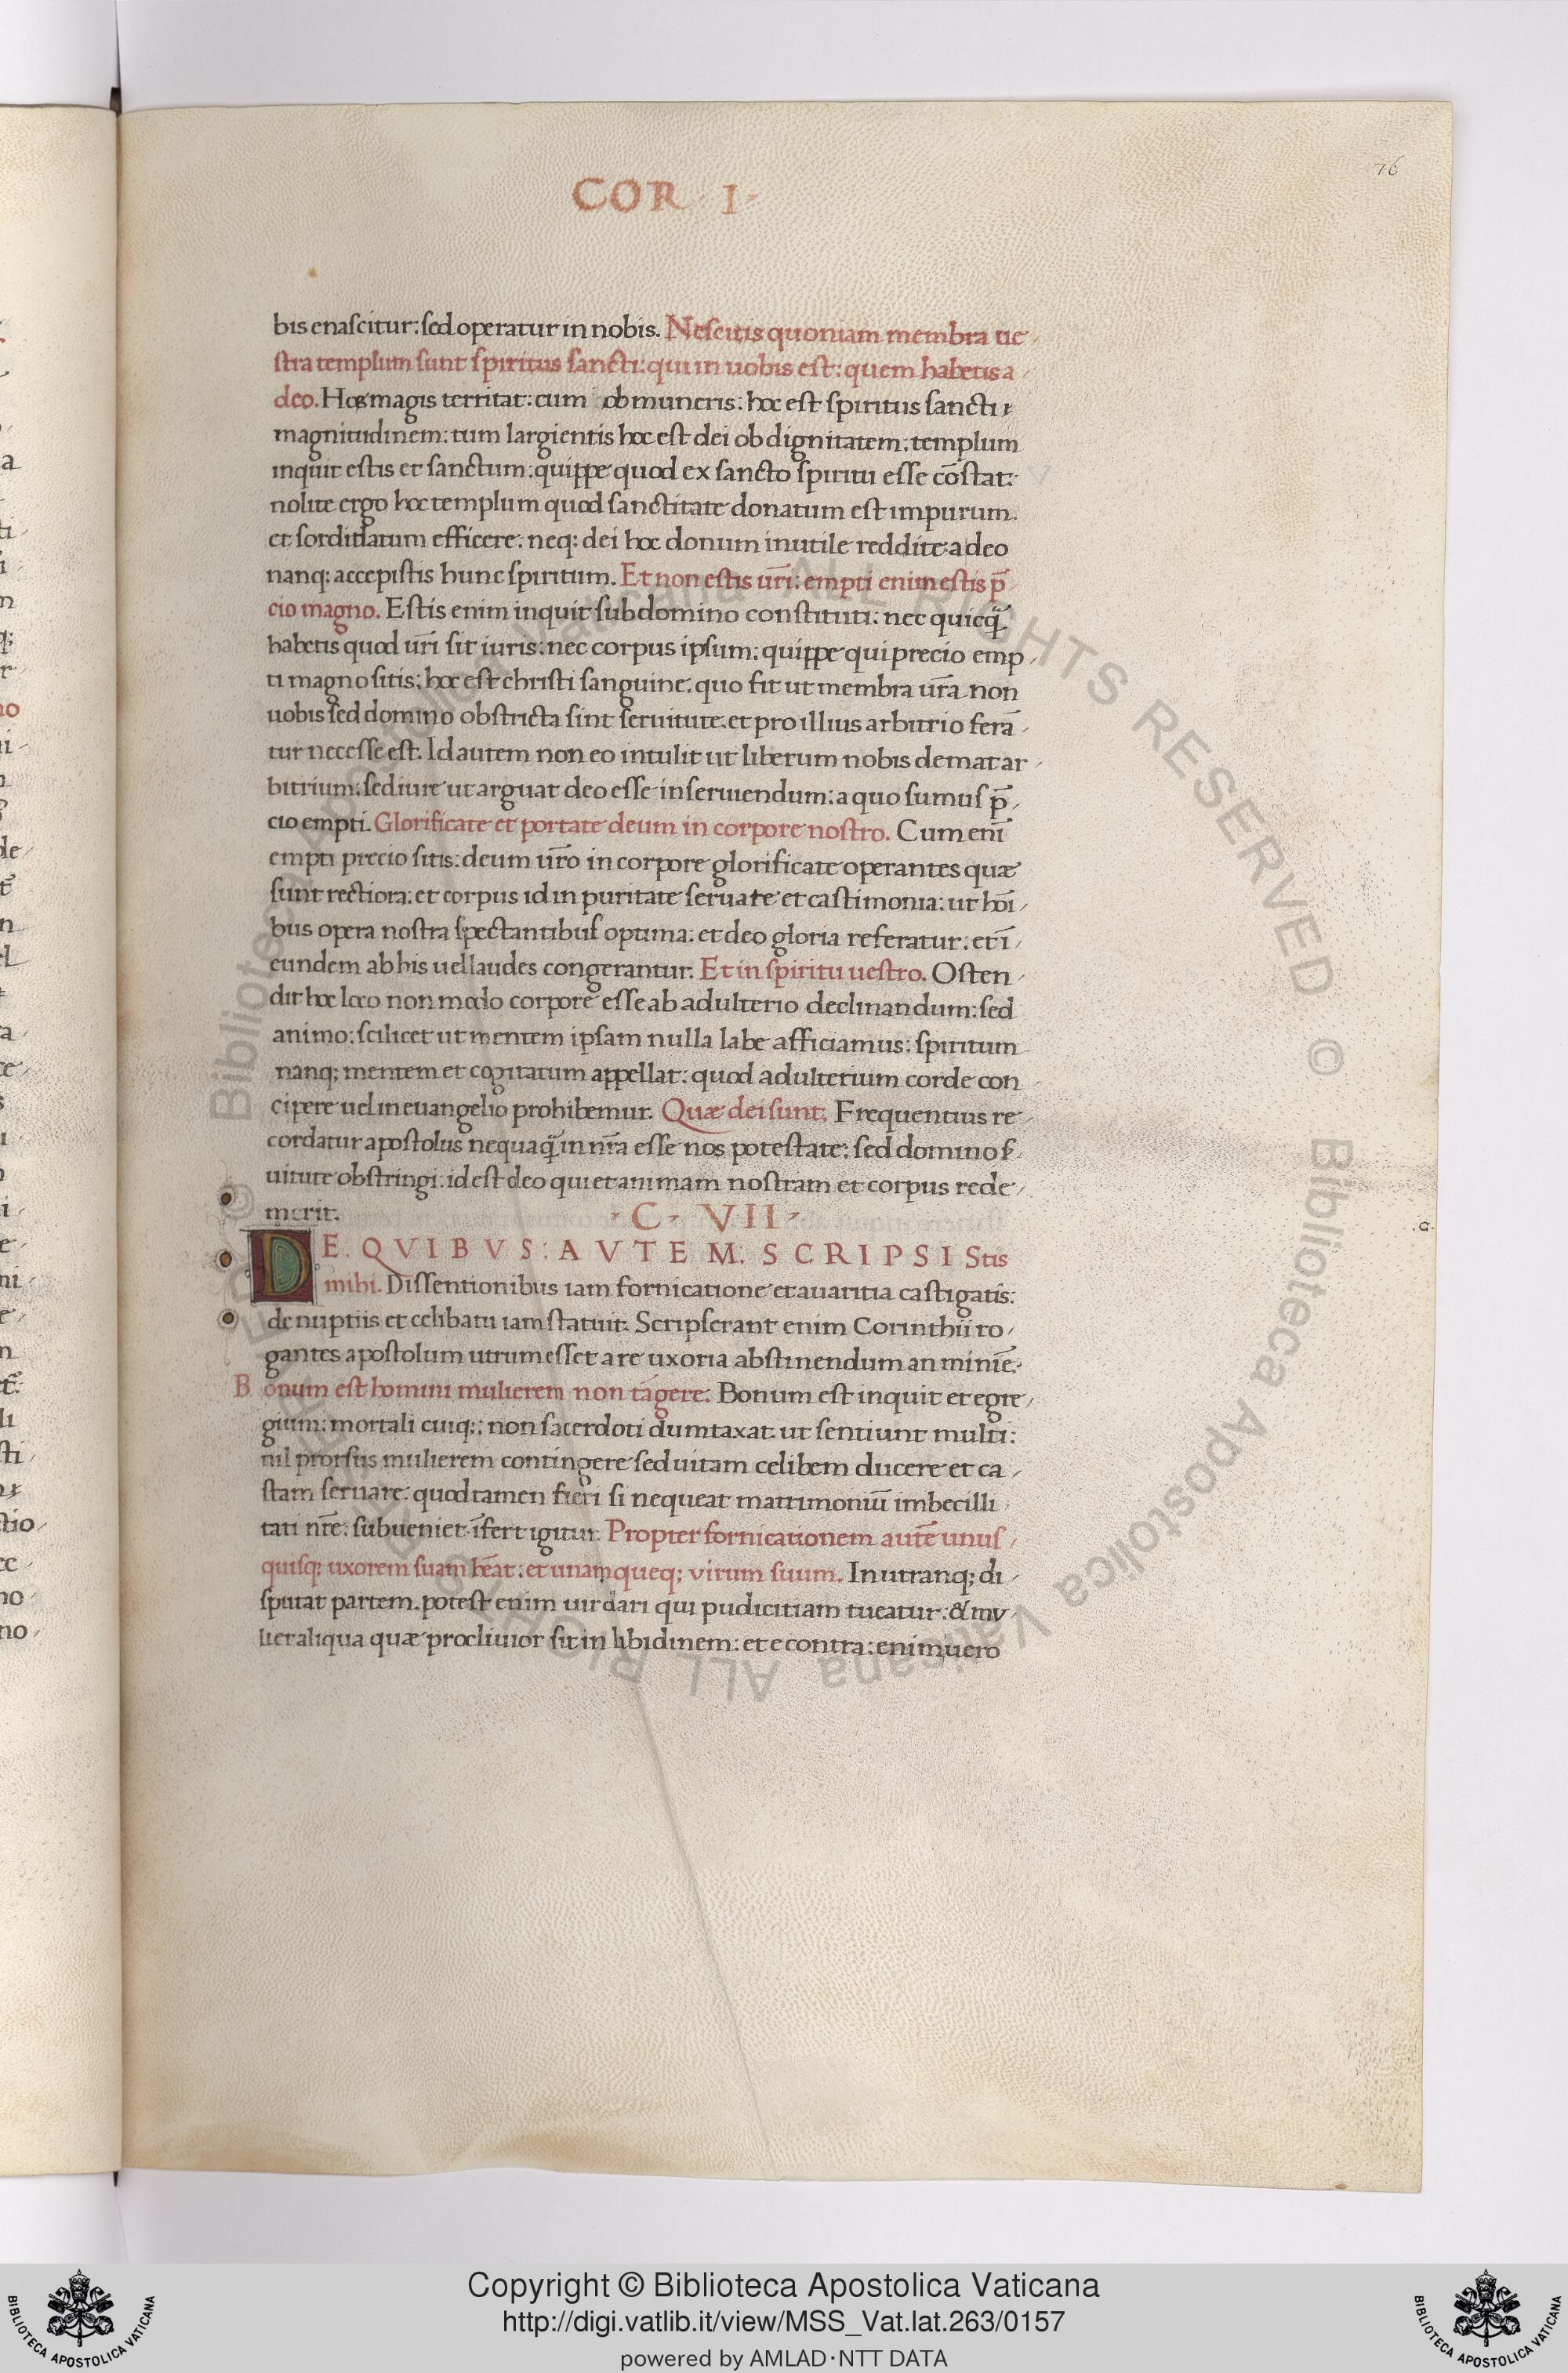 76
COR · I ·
bis enascitur: sed operatur in nobis. Nescitis quoniam membra ue
stra templum sunt spiritus sancti: qui in uobis est: quem habetis a
deo. Hos magis territat: cum ob muneris: hoc est spiritus sancti
magnitudinem: tum largientis hoc est dei ob dignitatem: templum
inquit estis et sanctum: quippe quod ex sancto spiritu esse cōstat:
nolite ergo hoc templum quod sanctitate donatum est impurum.
et sorditatum efficere: neq; dei hoc donum inutile reddite: a deo
nanq; accepistis hunc spiritum. Et non estis ur̄i: empti enim estis p̄
cio magno. Estis enim inquit sub domino constituti: nec quicq̄
habetis quod ur̄i sit iuris: nec corpus ipsum: quippe qui precio emp
ti magno sitis: hoc est christi sanguine. quo fit ut membra ur̄a non
uobis sed domino obstricta sint seruitute: et pro illius arbitrio ferā
tur necesse est. Id autem non eo intulit ut liberum nobis demat ar
bitrium: sed iure ut arguat deo esse inseruiendum: a quo sumus p̄
cio empti. Glorificate et portate deum in corpore nostro. Cum enī
empti precio sitis: deum ur̄o in corpore glorificate operantes quæ
sunt rectiora: et corpus id in puritate seruate et castimonia: ut hoī
bus opera nostra spectantibus optima: et deo gloria referatur: et ī
eundem ab his uel laudes congerantur. Et in spiritu uestro. Osten
dit hoc loco non modo corpore esse ab adulterio declinandum: sed
animo: scilicet ut mentem ipsam nulla labe afficiamus: spiritum
nanq; mentem et cogitatum appellat: quod adulterium corde con
cipere uel in euangelio prohibemur. Quæ dei sunt. Frequentius re
cordatur apostolus nequaq̄ in nr̄a esse nos potestate: sed domino s
uitute obstringi: id est deo qui et animam nostram et corpus rede
merit. · C · VII ·
DE. QVIBVS: AVTEM. SCRIPSIStis
mihi. Dissentionibus iam fornicatione et auaritia castigatis:
de nuptiis et celibatu iam statuit: Scripserant enim Corinthii ro
gantes apostolum utrum esset a re uxoria abstinendum an minīe:
Bonum est homini mulierem non tangere: Bonum est inquit et egre
gium: mortali cuiq;: non sacerdoti dumtaxat ut sentiunt multi:
nil prorsus mulierem contingere sed uitam celibem ducere et ca
stam seruare: quod tamen fieri si nequeat matrimoniū imbecilli
tati nr̄e: subueniet. īfert igitur: Propter fornicationem autē unus
quisq; uxorem suam hēat: et unamqueq; virum suum. In utranq; di
sputat partem. potest enim uir dari qui pudicitiam tueatur: & mv
lier aliqua quæ procliuior sit in libidinem: et e contra: enimuero
Copyright © Biblioteca Apostolica Vaticana
http://digi.vatlib.it/view/MSS_Vat.lat.263/0157
powered by AMLAD·NTT DATA